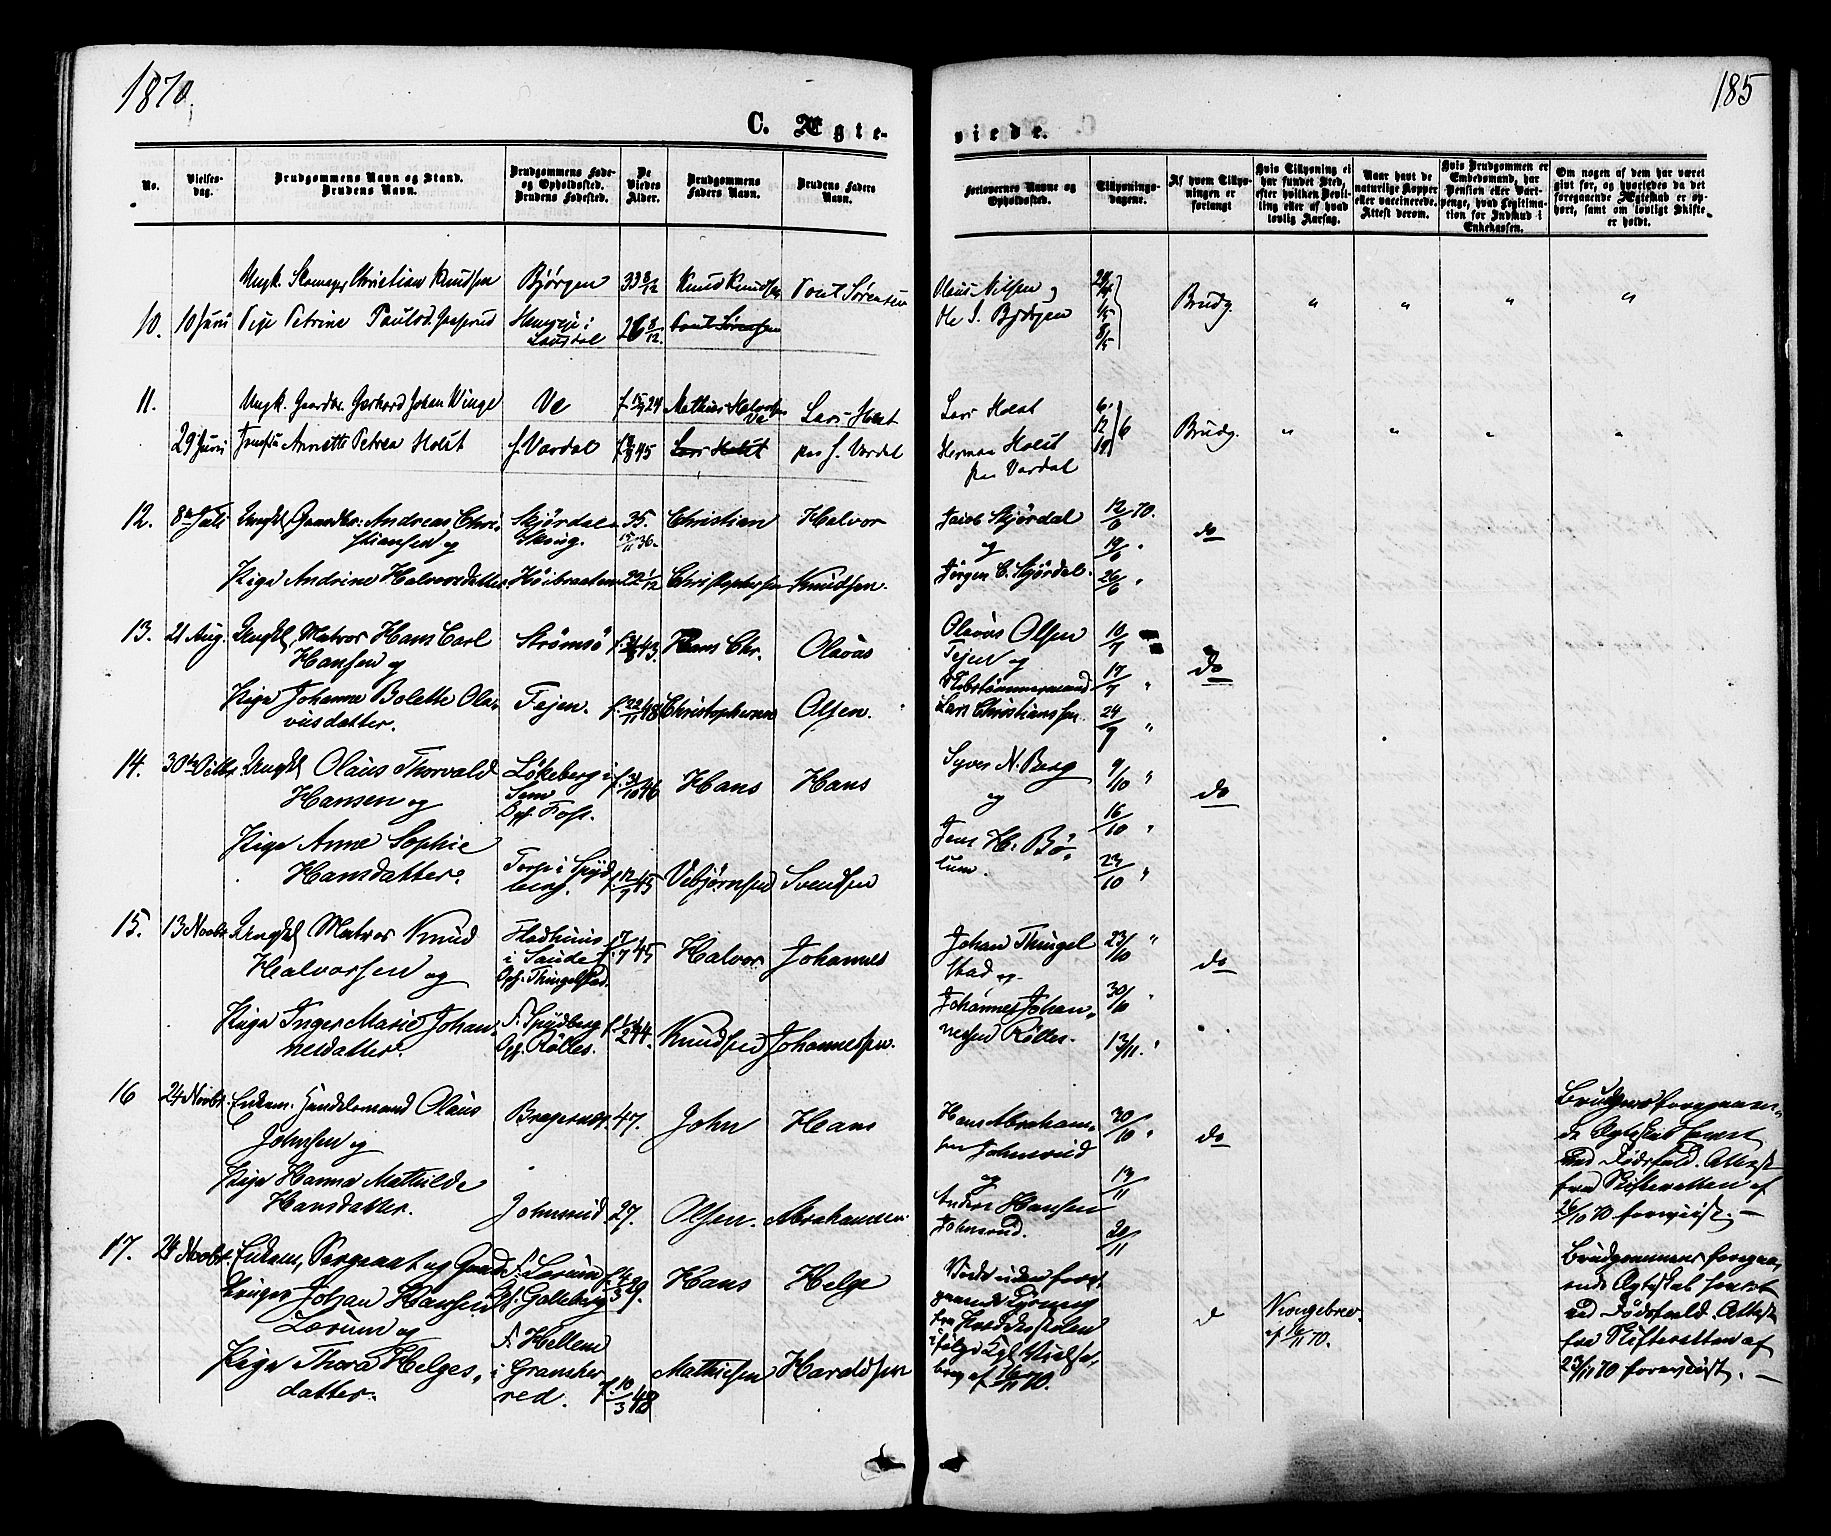 1870.
185
C. Ægteviede.
No.
Vielsesdag.
Brudgommens Navn og Stand.
Brudens Navn.
Brudgommens Føde- og Opholdssted.
Brudens Fødested.
De Viedes Alder.
Brudgommens Faders Navn.
Brudens Faders Navn.
Forlovernes Navne og Opholdssted.
Tillysningsdagene.
Af hvem Tillysningen er forlangt
Hvis Tillysning ei har fundet Sted, efter hvilken Bevilling eller af hvad lovlig Aarsag.
Naar havt de naturlige Kopper eller vaccinerede. Attest derom.
Hvis Brudgommen er Embedsmand, har Pension eller Vartpenge, hvad Legitimation for Indskud i Enkekassen.
Om nogen af dem har været gift før, og hvorledes da det foregaaende Ægteskab er ophørt, samt om lovligt Skifte er holdt.
10. 10 Juni
Ungk. Skomager Christian Knudsen
Bjørgen
33 8/12
Knud Knudsen
Poul Sørensen
Pige Petrine Paulsd.
26 8/12
Poul Sørensen
Olaus Nilsen og
Ole S. Bjørgen
1/5
8/5
Brudg.
" " " "
11. 29 Juni
Ungk. Gaardbr. Gerhard Johan Winge
Ve
Mathias Halvorsen Ve
Lars Holst
Jomfru Annette Petrea Holst
f. Vardal
Lars Holst
paa f. Vardal
Lars Holst
Herman Holst
paa Vardal
6. 12 19 / 6
Brudg.
" " " "
12. 8de Juli
Ungkl Gaardbr: Andreas Christiansen og
Skjørdal
Skoug.
35.
15/11 36.
Christian
Halvor
Pige Andrine Halvorsdatter.
Kóibraaten
22 1/12
Christophersen
Knudsen.
Jacob Skjørdal
og
Jørgen C. Skjørdal.
12/6 70.
19/6 "
26/6 "
do
13. 21 Aug.
Ungkl. Matros Hans Carl
Hansen og
Strømsø
43.
Hans Chr.
Olavus
Pige Johanne Bolette Olavusdatter.
Tejen.
f. 22/11 48
Christophersen
Olsen.
Olavus Olsen
Tejen og
Skibstømmermand
Lars Christianssen.
10/7
17/7 "
24/7 "
do
14. 30te Octbr.
Ungkl Olaus Thorvald
Hansen og
Løkeberg i
Sem
Oph. Foss.
f. 31/10 46
Hans
Hans
Pige Anne Sophie
Hansdatter.
Torp i Spydberg.
f. 12/9 45
Vebjørnsen
Svendsen
Syver N. Berg
og
Jens H. Bølum.
9/10 "
16/10 "
23/10 "
do
15. 13 Novbr.
Ungkl Matros Knud
Halvorsen og
i Saude
Oph. Thingelstad.
f. 17/7 45
Halvor
Johannes
Pige Inger Marie Johannesdatter.
F. Spydberg
Oph. Rølles.
44.
Knudsen
Johannessen.
Johan Thingelstad og
Johannes Johannesen Rølles.
23/10 "
30/10 "
13/11. "
do
16 24 Novbr.
Enkem. Handelsmand Olaus
Johnsen og
Bragernes.
47.
John
Hans
Pige Hanna Mathilde
Hansdatter.
Johnsrud.
27.
Olsen.
Abrahamsen.
Hans Abrahamsen Johnsrud
og
Anders Hansen
Johnsrud.
30/10 "
13/11
20/11
do
Brudgoms foregaaende Ægteskab hævet
ved Dødsfald. Attest
fra Skifteretten af
26/10 70 forevist. —
17. 28 Novbr.
Enkem, Sergeant og Gaardbruger Johan Hansen
Lorum og
F. Lorum
Oph. Galleberg
f. 4/3 29.
Hans
Helge
Pige Thora Helgesdatter.
F. Hellem
i Gransherred.
f. 10/3 48
Mathiesen
Haraldsen
Viede uden foregaaende Lysning
fra Prædikestolen
ifølge Kgl. Vielsesbrev af 16/11 70.
d
Kongebrev
af 16/11 70.
Brudgommens foregaaende Ægteskab hævet
ved Dødsfald. Attest
fra Skifteretten af
23/11 70 forevist. —